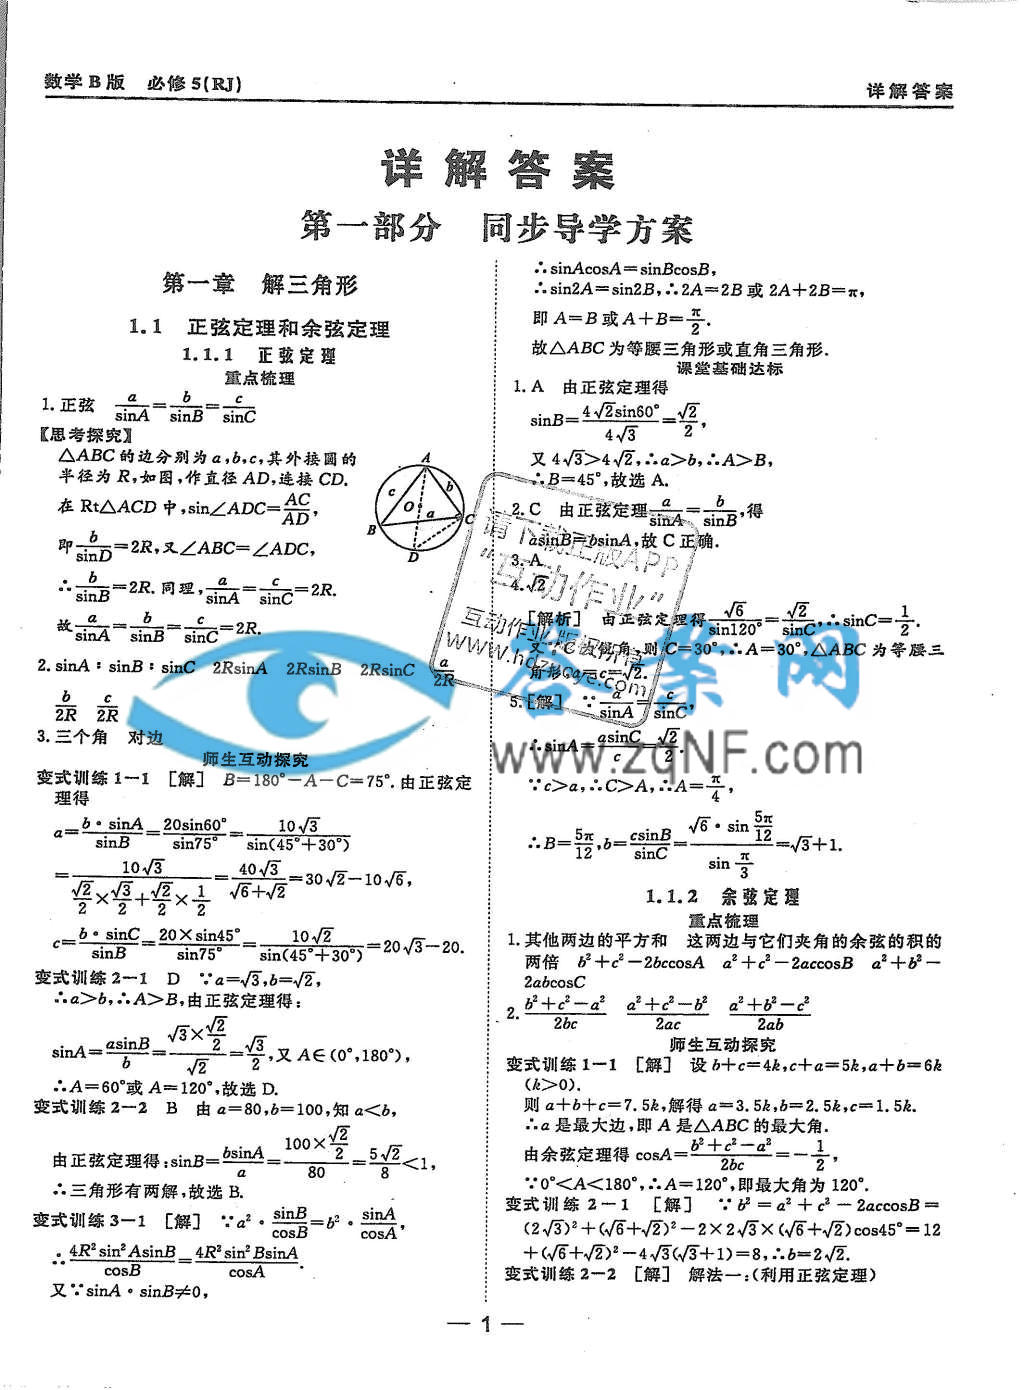 数学B版 必修5(RJ)
详解答案
详解答案
第一部分 同步导学方案
第一章 解三角形
1.1 正弦定理和余弦定理
1.1.1 正弦定理
重点梳理
1.正弦 a/sinA=b/sinB=c/sinC
【思考探究】
△ABC的边分别为a,b,c,其外接圆的
半径为R,如图,作直径AD,连接CD.
在Rt△ACD中,sin∠ADC=AC/AD,
即b/sinD=2R,又∠ABC=∠ADC,
∴b/sinB=2R.同理,a/sinA=c/sinC=2R.
故a/sinA=b/sinB=c/sinC=2R.
A
c b
O
a
B C
D
2.sinA∶sinB∶sinC 2RsinA 2RsinB 2RsinC a/2R
b/2R c/2R
3.三个角 对边
师生互动探究
变式训练1-1 [解] B=180°-A-C=75°.由正弦定
理得
a=b·sinA/sinB=20sin60°/sin75°=10√3/sin(45°+30°)
=10√3/(√2/2×√3/2+√2/2×1/2)=40√3/(√6+√2)=30√2-10√6,
c=b·sinC/sinB=20×sin45°/sin75°=10√2/sin(45°+30°)=20√3-20.
变式训练2-1 D ∵a=√3,b=√2,
∴a>b,∴A>B,由正弦定理得:
sinA=asinB/b=(√3×√2/2)/√2=√3/2,又A∈(0°,180°),
∴A=60°或A=120°,故选D.
变式训练2-2 B 由a=80,b=100,知a<b,
由正弦定理得:sinB=bsinA/a=(100×√2/2)/80=5√2/8<1,
∴三角形有两解,故选B.
变式训练3-1 [解] ∵a²·sinB/cosB=b²·sinA/cosA,
∴4R²sin²AsinB/cosB=4R²sin²BsinA/cosA.
又∵sinA·sinB≠0,
∴sinAcosA=sinBcosB,
∴sin2A=sin2B,∴2A=2B或2A+2B=π,
即A=B或A+B=π/2.
故△ABC为等腰三角形或直角三角形.
课堂基础达标
1.A 由正弦定理得
sinB=4√2sin60°/4√3=√2/2,
又4√3>4√2,∴a>b,∴A>B,
∴B=45°,故选A.
2.C 由正弦定理a/sinA=b/sinB,得
asinB=bsinA,故C正确.
3.A
4.√2
[解析] 由正弦定理得√6/sin120°=√2/sinC,∴sinC=1/2.
又∵C为锐角,则C=30°,∴A=30°,△ABC为等腰三
角形,a=c=√2.
5.[解] ∵a/sinA=c/sinC,
∴sinA=asinC/c=√2/2.
∵c>a,∴C>A,∴A=π/4,
∴B=5π/12,b=csinB/sinC=(√6·sin5π/12)/(sinπ/3)=√3+1.
1.1.2 余弦定理
重点梳理
1.其他两边的平方和 这两边与它们夹角的余弦的积的
两倍 b²+c²-2bccosA a²+c²-2accosB a²+b²-
2abcosC
2.(b²+c²-a²)/2bc (a²+c²-b²)/2ac (a²+b²-c²)/2ab
师生互动探究
变式训练1-1 [解] 设b+c=4k,c+a=5k,a+b=6k
(k>0).
则a+b+c=7.5k,解得a=3.5k,b=2.5k,c=1.5k.
∴a是最大边,即A是△ABC的最大角.
由余弦定理得cosA=(b²+c²-a²)/2bc=-1/2,
∵0°<A<180°,∴A=120°,即最大角为120°.
变式训练2-1 [解] ∵b²=a²+c²-2accosB=
(2√3)²+(√6+√2)²-2×2√3×(√6+√2)cos45°=12
+(√6+√2)²-4√3(√3+1)=8,∴b=2√2.
变式训练2-2 [解] 解法一:(利用正弦定理)
请下载正版APP
“互动作业”
答案网
www.zqNF.com
— 1 —